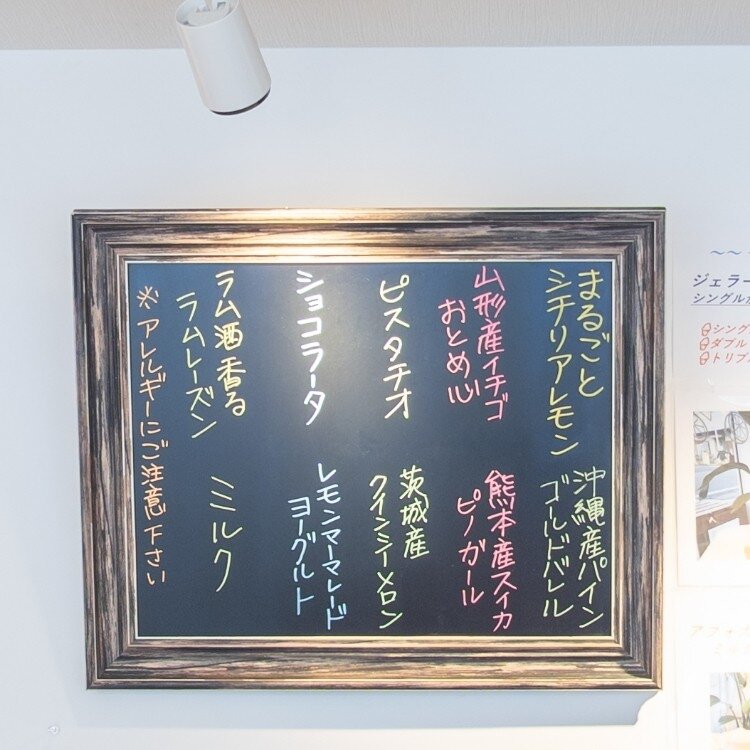 まるごと
シチリアレモン
山形産イチゴ
おとめ心
ピスタチオ
ショコラータ
ラム酒香る
ラムレーズン
沖縄産パイン
ゴールドバレル
熊本産スイカ
ピノガール
茨城産
クインシーメロン
レモンマーマレード
ヨーグルト
ミルク
※アレルギーにご注意下さい
ジェラー
シングル
シング
ダブル
トリプ
アフォガ
ミル